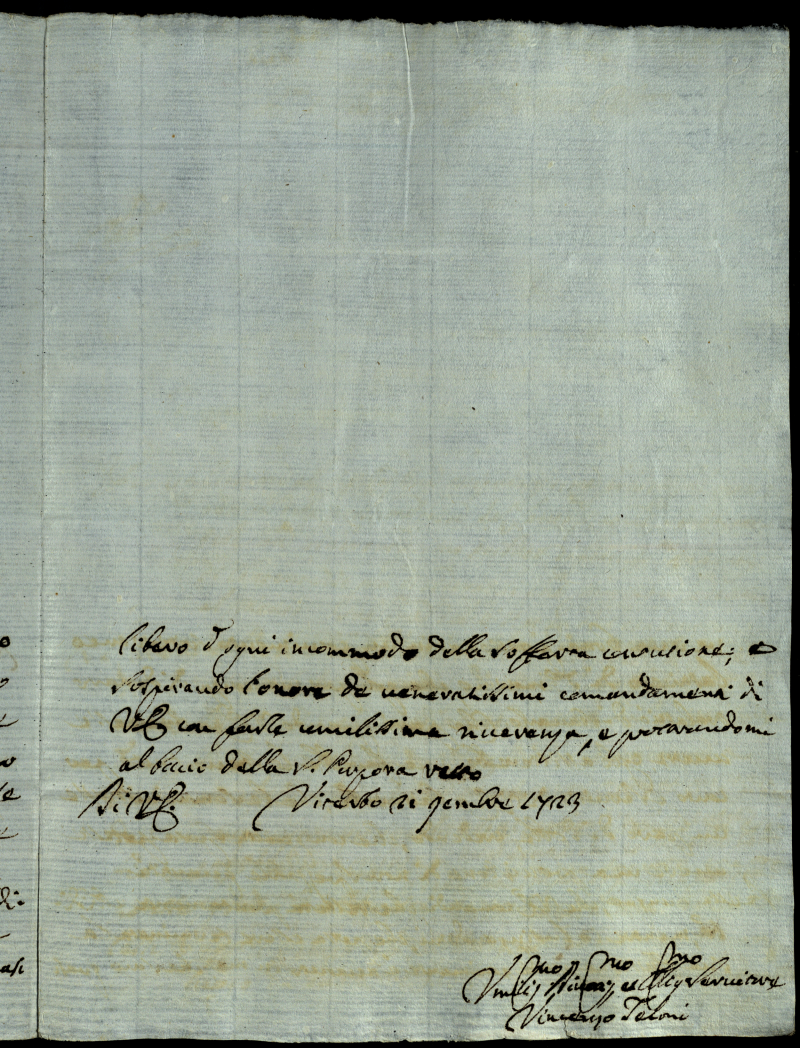 libero d'ogni incommodo della sofferta concusione; e
sospirando l'onore de veneratissimi comandamenti di
VE con farle umilissima riverenza, e prostrandomi
al bacio della S. Porpora resto
Di VE. Viterbo 21 9embre 1723
Umilis.mo Divotis.mo et Oblig.mo Servitore
Vincenzo Teloni